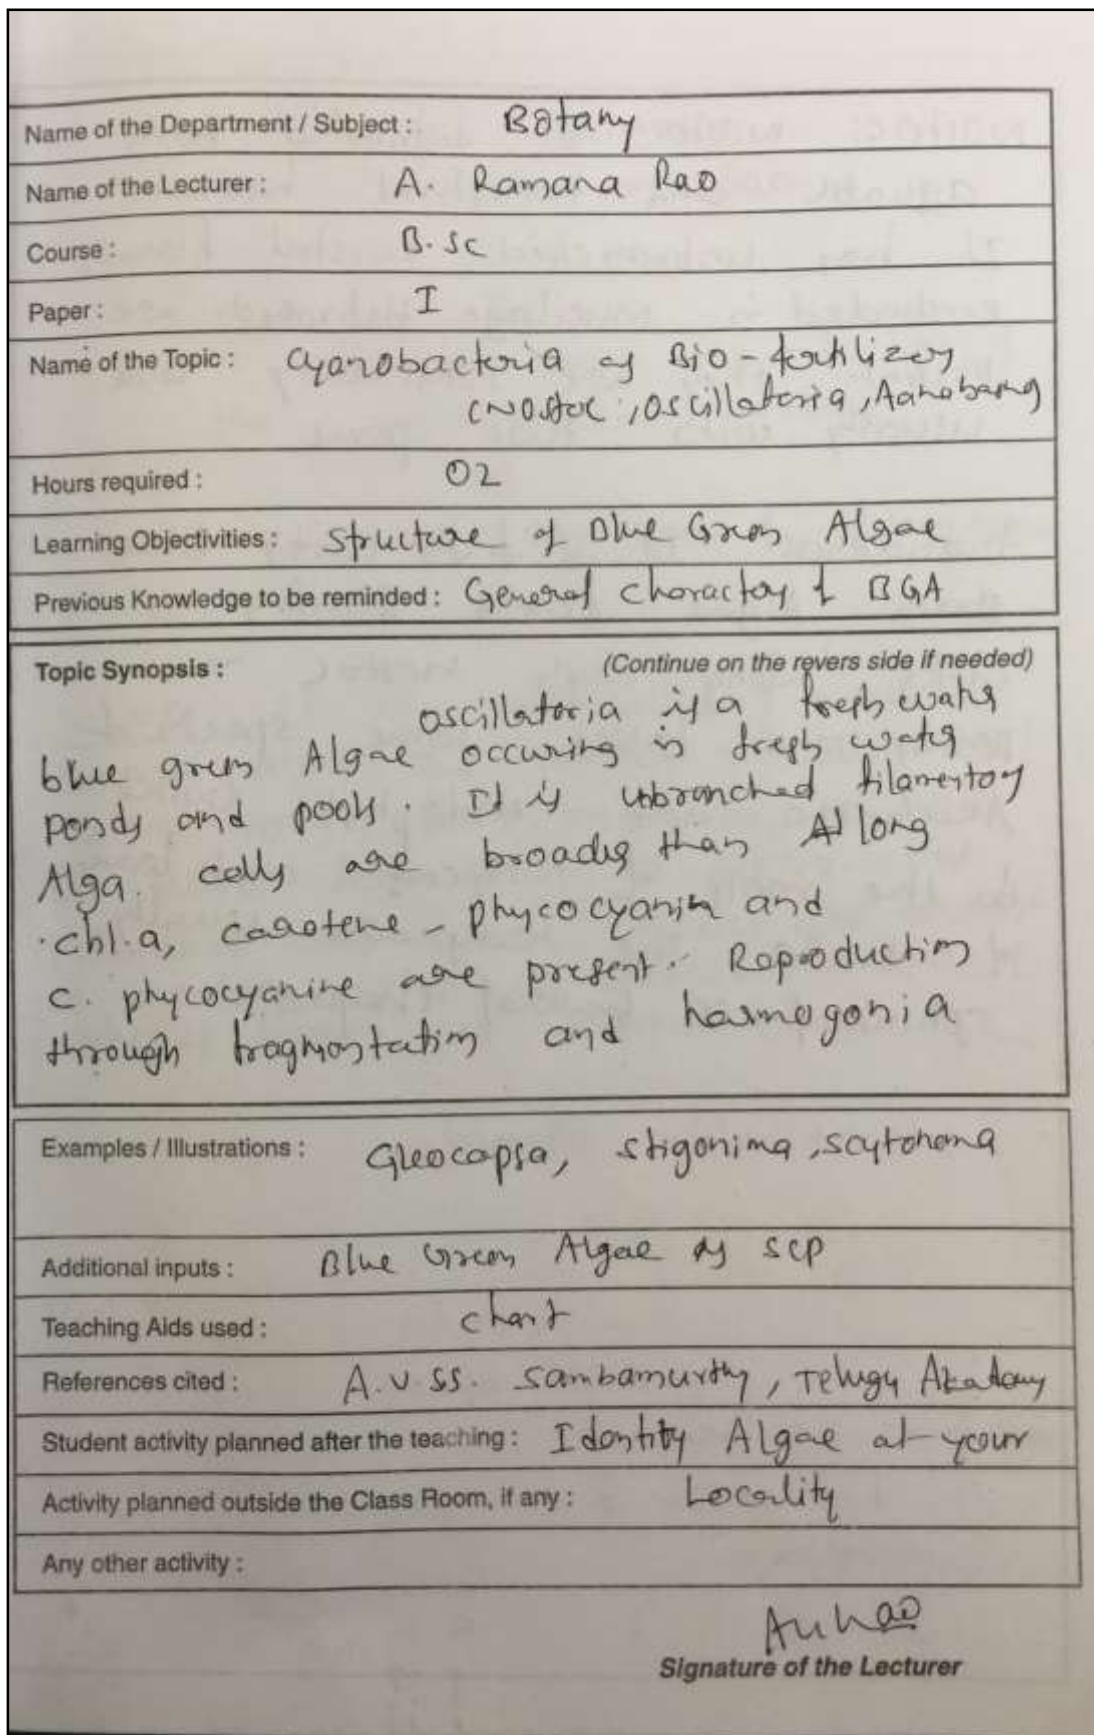 Name of the Department / Subject : Botany
Name of the Lecturer : A. Ramana Rao
Course : B.Sc
Paper : I
Name of the Topic : Cyanobacteria as Bio-fertilizers
(Nostoc, Oscillatoria, Aanabaena
Hours required : 02
Learning Objectivities : Structure of Blue Green Algae
Previous Knowledge to be reminded : General charactors of BGA
Topic Synopsis : (Continue on the revers side if needed)
oscillatoria is a fresh water
blue green Algae occuring in fresh water
ponds and pools. It is unbranched filamentous
Alga. cells are broader than long
chl.a, carotene - phycocyanin and
c. phycocyanine are present. Reproduction
through fragmentation and harmogonia
Examples / Illustrations : Gleocapsa, stigonima, scytonema
Additional inputs : Blue Green Algae as SCP
Teaching Aids used : chart
References cited : A.V.SS. Sambamurthy, Telugu Akadamy
Student activity planned after the teaching : Identify Algae at your
Activity planned outside the Class Room, if any : Locality
Any other activity :
Signature of the Lecturer